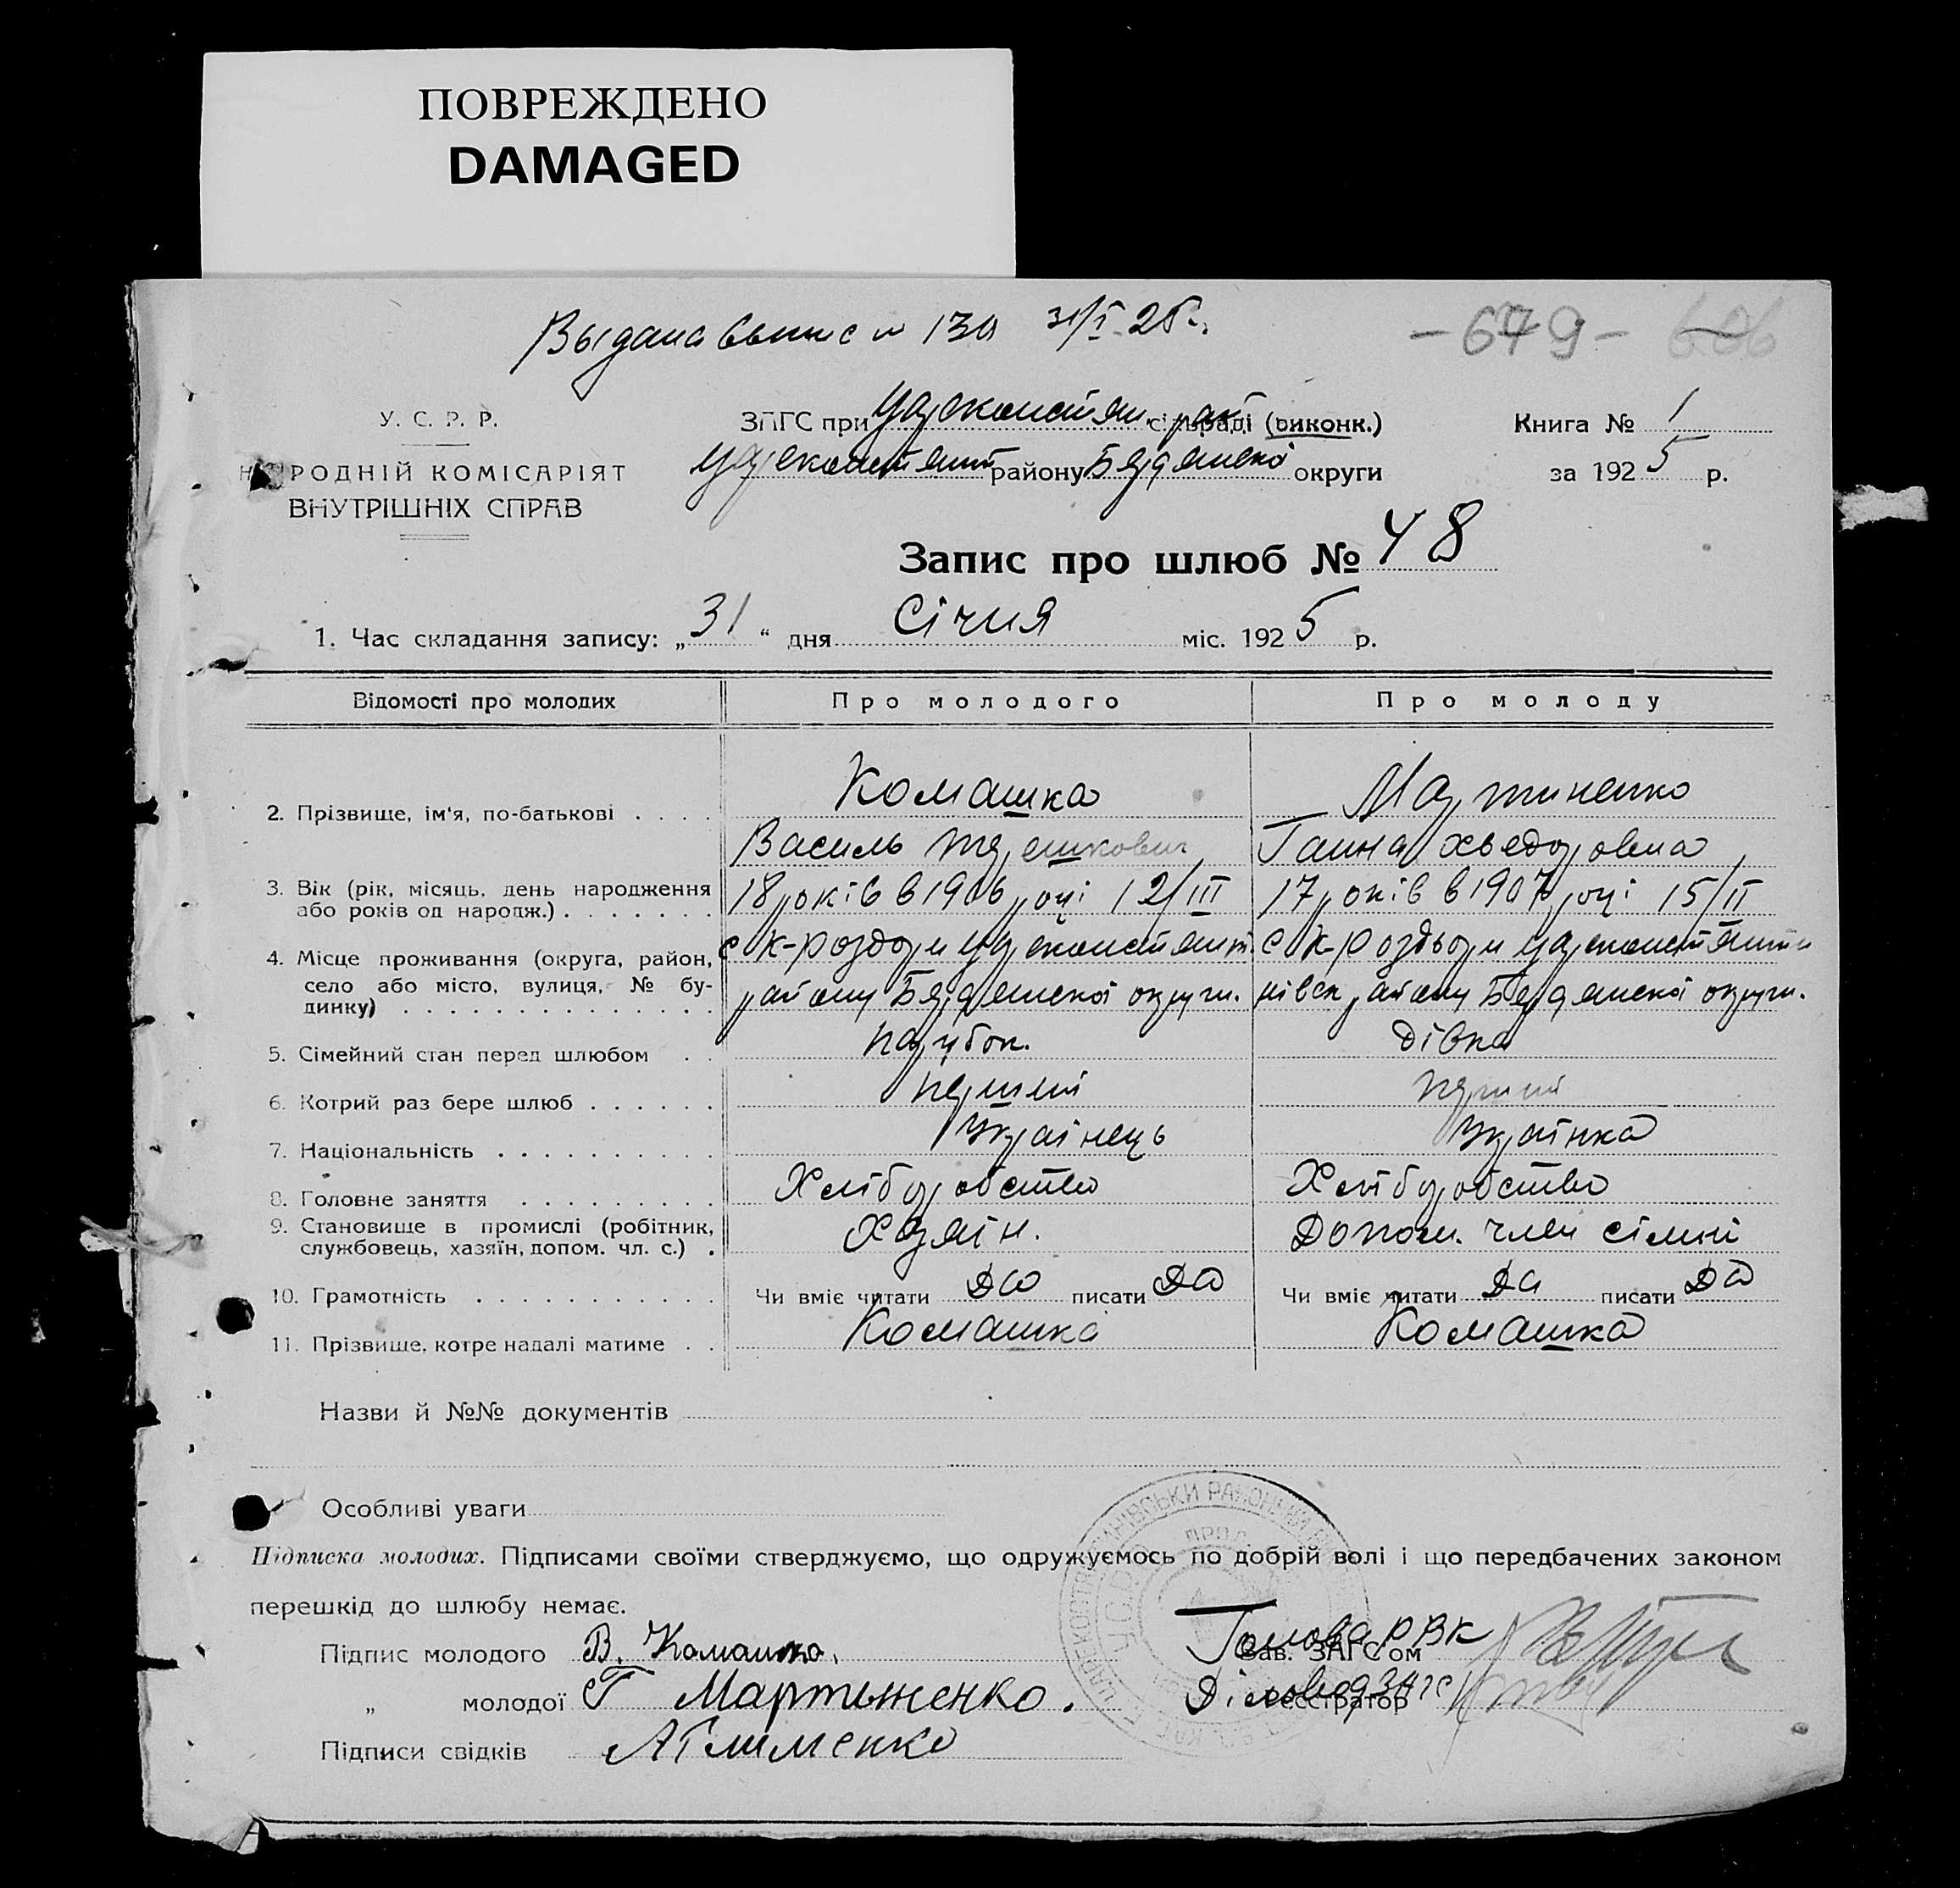 ПОВРЕЖДЕНО
DAMAGED
Выдана выпис 31/I 25 г.
- 679 - 606
У. С. Р. Р.
НАРОДНІЙ КОМІСАРІЯТ
ВНУТРІШНІХ СПРАВ
ЗПГС при Цареконстян. рай. сільраді (виконк.)
Цареконстянт району Бердянской округи
Книга № 1
за 1925 р.
Запис про шлюб № 48
1. Час складання запису: „31“ дня Січня міс. 1925 р.
Відомості про молодих Про молодого Про молоду
2. Прізвище, ім'я, по-батькові . . . . Комашка Мартиненко
Василь Терешкович Ганна Хведоровна
3. Вік (рік, місяць, день народження або років од нарожд.) . . . . . . . 18 років в 1906 році 12/III 17 років в 1907 році 15/II
4. Місце проживання (округа, район, село або місто, вулиця, № будинку) . . . . . . . . . . . . . . с К-роздори Цареконстянт. району Бердянскоі округи. с К-роздьори Цареконстянти нівск району Бердянскоі округи.
5. Сімейний стан перед шлюбом . . парубок. дівка
6. Котрий раз бере шлюб . . . . . . перший перший
7. Національність . . . . . . . . . . Украінець Украінка
8. Головне заняття . . . . . . . . . Хліборобство Хліборобство
9. Становище в промислі (робітник, службовець, хазяїн, допом. чл. с.) . Хозяін. Допом. член сімпі
10. Грамотність . . . . . . . . . . . Чи вміє читати да писати да Чи вміє читати да писати да
11. Прізвище, котре надалі матиме . . Комашка Комашка
Назви й №№ документів
Особливі уваги
Підписка молодих. Підписами своїми стверджуємо, що одружуємось по добрій волі і що передбачених законом
перешкід до шлюбу немає.
Підпис молодого В. Комашка. Голова РВК Зав. ЗАГС'ом
„ молодої Г Мартыненко. Діловод ЗАГС Реєстратор
Підписи свідків А Глименко